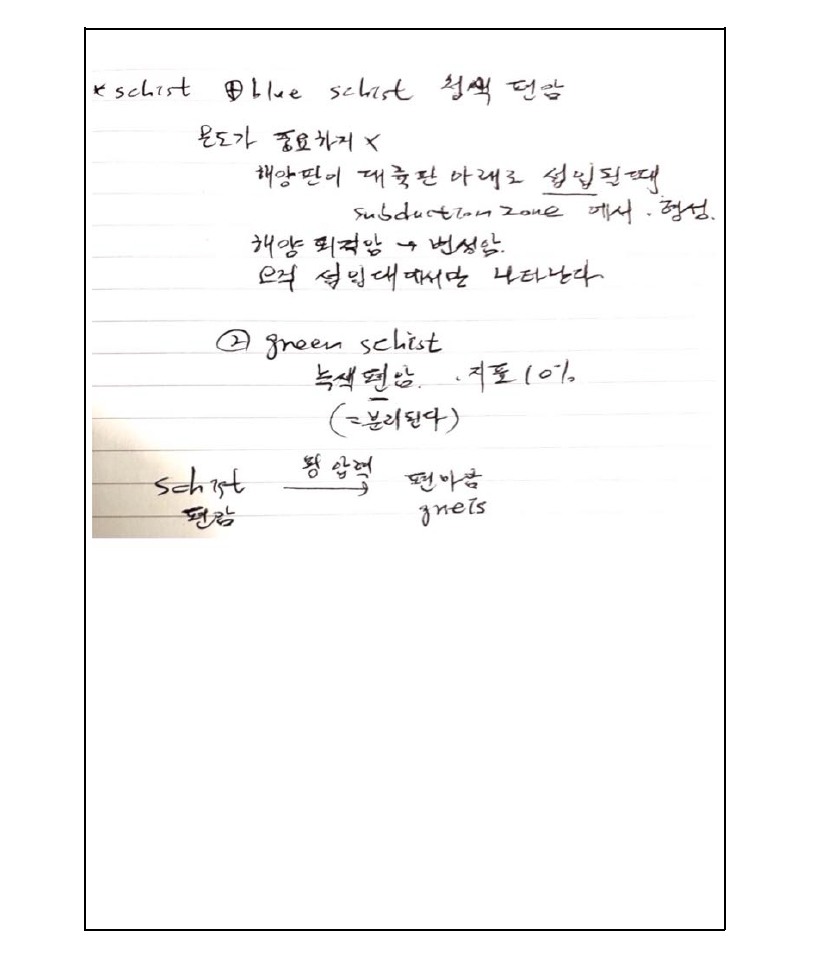 * schist ① blue schist 청색 편암
온도가 중요하지 X
해양판이 대륙판 아래로 섭입될때
subduction zone 에서. 형성.
해양 퇴적암 → 변성암.
오직 섭입대에서만 나타난다.
② green schist
녹색편암. . 지표 10%
(=분리된다)
schist → 편마암
압력
편암 gneis